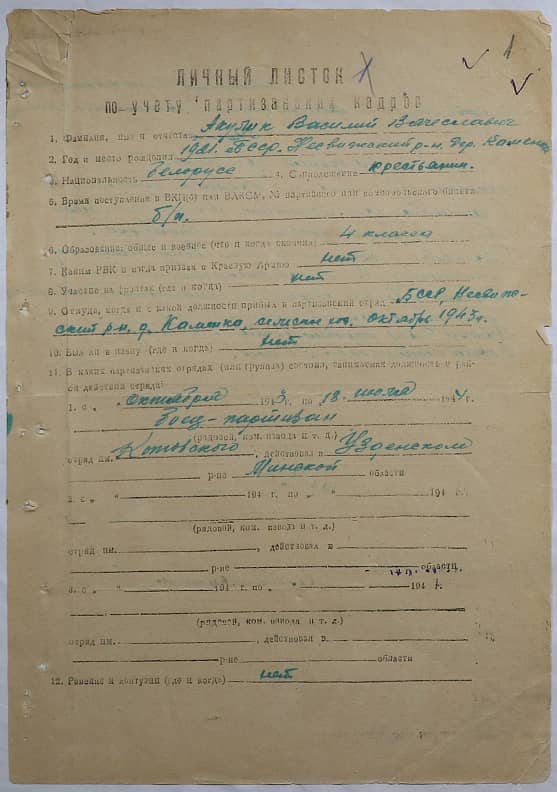 1
ЛИЧНЫЙ ЛИСТОК
по учету партизанских кадров
1. Фамилия, имя и отчество Якубик Василий Вячеславич
2. Год и место рождения 1921. Бсср. Несвижский р-н. дер. Каменка
3. Национальность белорусс 4. Соцположение крестьянин.
5. Время поступления в ВКП(б) или ВЛКСМ, № партийного или комсомольского билета
б/п.
6. Образование: общее и военное (что и когда окончил) 4 класса
7. Каким РВК и когда призван в Красную Армию нет
8. Участие на фронтах (где и когда) нет
9. Откуда, когда и с какой должности прибыл в партизанский отряд Бсср, Несвиж-
ский р-н, д. Каменка, октябрь 1943 г.
10. Был ли в плену (где и когда) нет
11. В каких партизанских отрядах (или группах) состоял, занимаемая должность и рай-
он действия отряда:
1. с „ " октября 1943 г. по 18 июля 1944 г.
боец-партизан
(рядовой, ком. взвода и т. д.)
отряд им. Котовского, действовал в Узденском
р-не Минской области
2. с „ " 194 г. по „ " 194 г.
(рядовой, ком. взвода и т. д.)
отряд им. , действовал в
р-не области
3. с „ " 194 г. по „ " 194 г.
(рядовой, ком. взвода и т. д.)
отряд им. , действовал в
р-не области
12. Ранения и контузии (где и когда) нет